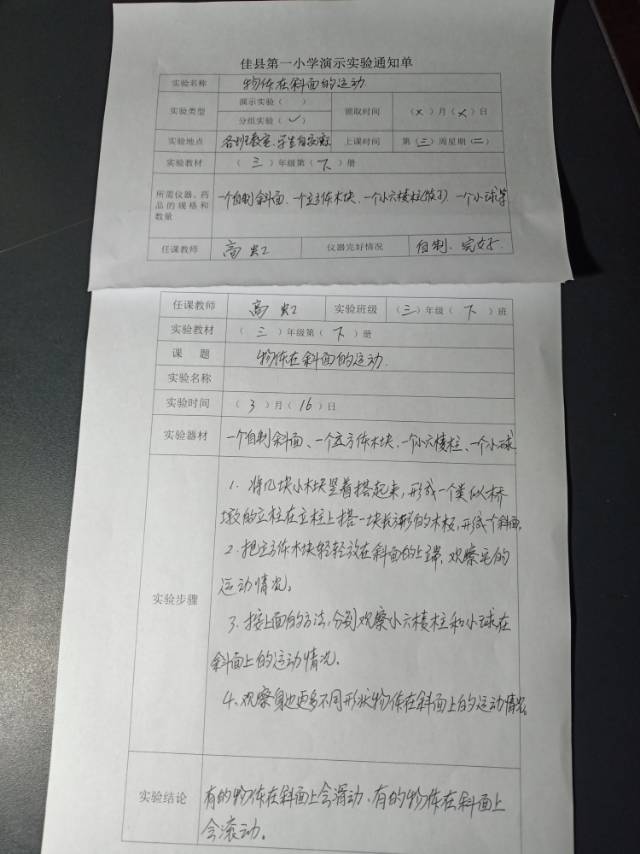 佳县第一小学演示实验通知单
实验名称 物体在斜面的运动
实验类型 演示实验（ ） 领取时间 （×）月（×）日
分组实验（✓）
实验地点 各班教室 上课时间 第（三）周星期（二）
实验教材 （三）年级第（下）册
所需仪器、药品的规格和数量 一个自制斜面、一个立方体木块、一个小六棱柱 一个小球等
任课教师 高虹 仪器完好情况 自制、完好.
任课教师 高虹 实验班级 （三）年级（下）班
实验教材 （三）年级第（下）册
课题 物体在斜面的运动.
实验名称
实验时间 （3）月（16）日
实验器材 一个自制斜面、一个立方体木块、一个小六棱柱、一个小球
实验步骤
1. 将几块小木块竖着搭起来,形成一个类似桥
墩的立柱在立柱上搭一块长方形的木板,形成个斜面.
2. 把立方体木块轻轻放在斜面的上端,观察它的
运动情况。
3. 按上面的方法,分别观察小六棱柱和小球在
斜面上的运动情况.
4. 观察身边更多不同形状物体在斜面上的运动情况
实验结论 有的物体在斜面上会滑动、有的物体在斜面上
会滚动。